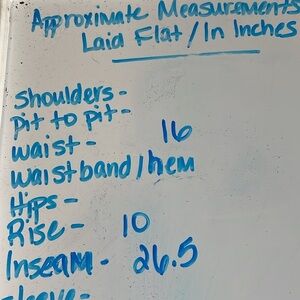 Approximate Measurements
Laid Flat / In Inches
Shoulders -
Pit to pit -
Waist - 16
Waistband / hem
Hips -
Rise - 10
Inseam - 26.5
sleeve -